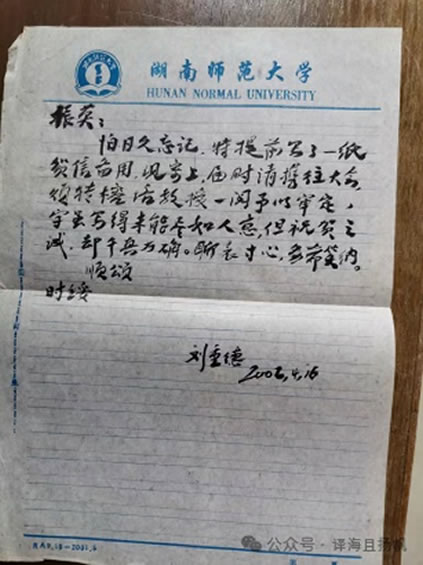 湖南师范大学
HUNAN NORMAL UNIVERSITY
振英：
怕日久忘记，特提前写了一纸
贺信备用，现寄上，届时请携往大会
烦转教授一阅予以审定，
字虽写得未能尽如人意，但祝贺之
诚，却千真万确。聊表寸心，多希笑纳。
顺颂
时绥
刘重德
2002.4.16
公众号·译海且扬帆